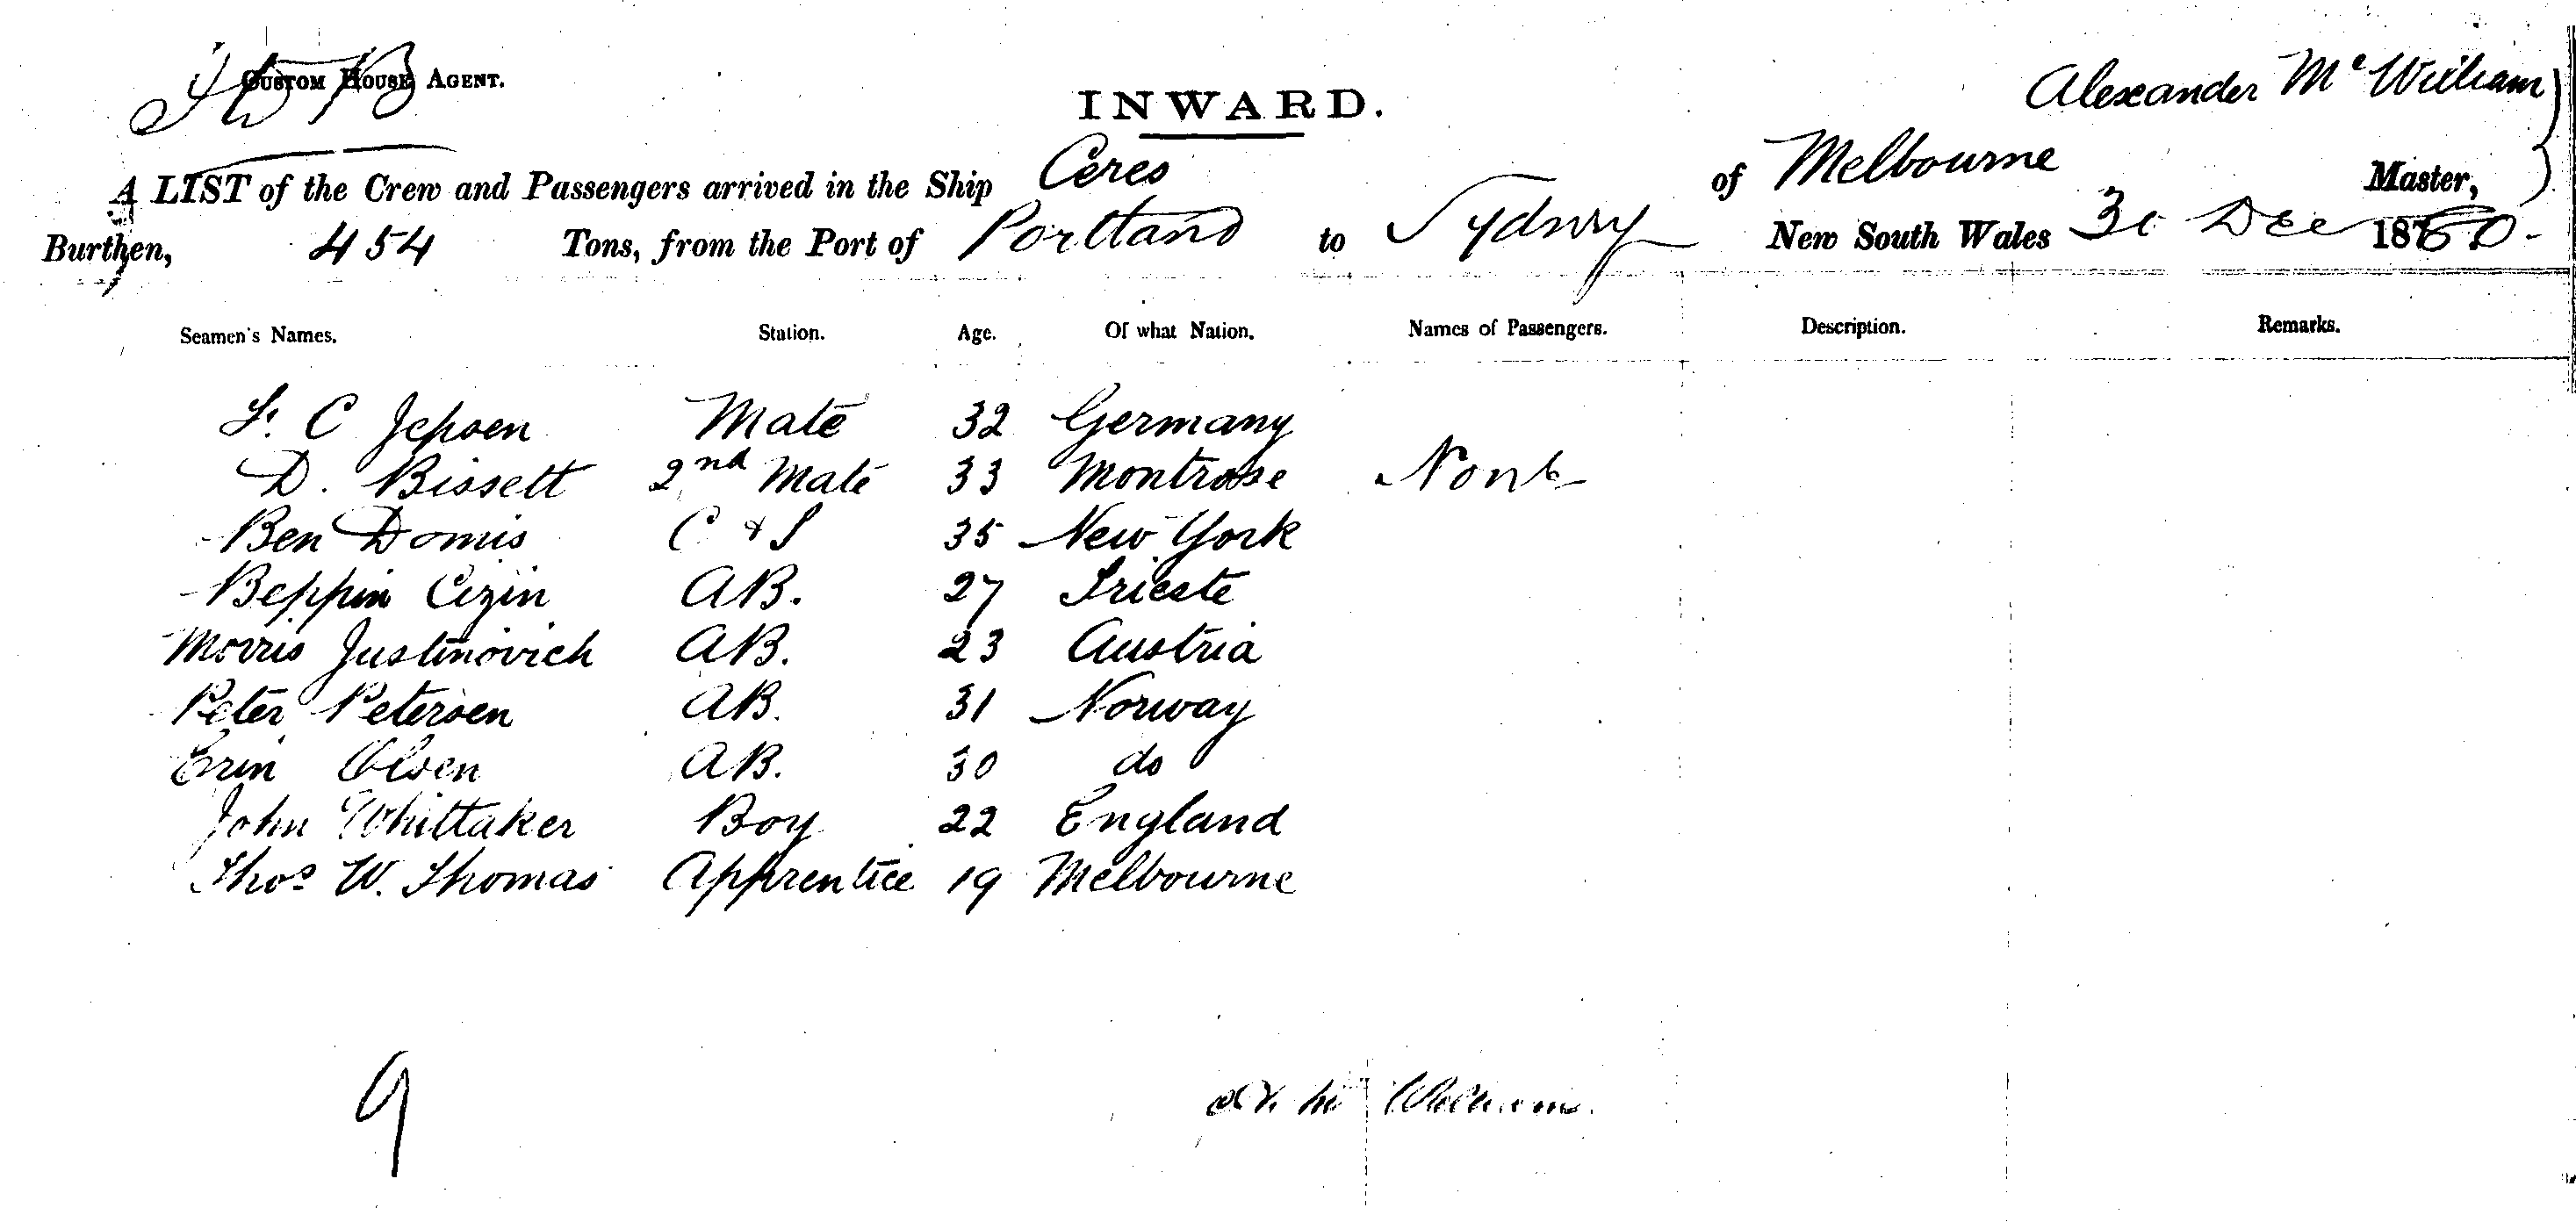 CUSTOM HOUSE AGENT.
INWARD.
Alexander McWilliam
A LIST of the Crew and Passengers arrived in the Ship Ceres of Melbourne Master,
Burthen, 454 Tons, from the Port of Portland to Sydney New South Wales Dec
Seamen's Names. Station. Age. Of what Nation. Names of Passengers. Description. Remarks.
C Jepsen Mate 32 Germany
D. Bissett 2nd Mate 33 Montrose None
Ben Domis C & S 35 New York
Beppin Cizin AB. 27 Trieste
Morris Justinovich AB. 23 Austria
Peter Petersen AB. 31 Norway
Erin Olsen AB. 30 do
John Whittaker Boy 22 England
Thos W. Thomas Apprentice 19 Melbourne
9